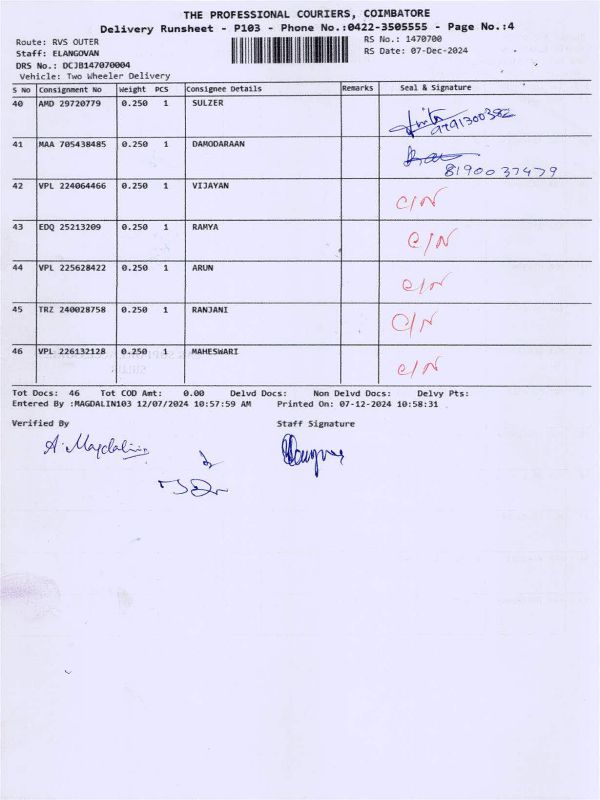 THE PROFESSIONAL COURIERS, COIMBATORE
Delivery Runsheet - P103 - Phone No.:0422-3505555 - Page No.:4
Route: RVS OUTER
RS No.: 1470700
Staff: ELANGOVAN
RS Date: 07-Dec-2024
DRS No.: DCJB147070004
Vehicle: Two Wheeler Delivery
S No Consignment No Weight PCS Consignee Details Remarks Seal & Signature
40 AMD 29720779 0.250 1 SULZER
9791300382
41 MAA 705438485 0.250 1 DAMODARAAN
8190037479
42 VPL 224064466 0.250 1 VIJAYAN C/N
43 EDQ 25213209 0.250 1 RAMYA C/N
44 VPL 225628422 0.250 1 ARUN C/N
45 TRZ 240028758 0.250 1 RANJANI C/N
46 VPL 226132128 0.250 1 MAHESWARI C/N
Tot Docs: 46 Tot COD Amt: 0.00 Delvd Docs: Non Delvd Docs: Delvy Pts:
Entered By :MAGDALIN103 12/07/2024 10:57:59 AM Printed On: 07-12-2024 10:58:31
Verified By Staff Signature
A. Magdalin